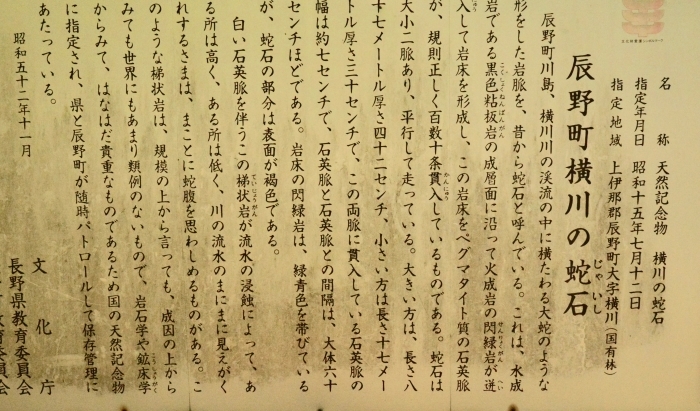 名 称 天然記念物 横川の蛇石
指定年月日 昭和十五年七月十二日
指定地域 上伊那郡辰野町大字横川(国有林)
辰野町横川の蛇石
じゃいし
辰野町川島、横川川の渓流の中に横たわる大蛇のような
形をした岩脈を、昔から蛇石と呼んでいる。これは、水成
岩である黒色粘板岩の成層面に沿って火成岩の閃緑岩が迸
入して岩床を形成し、この岩床をペグマタイト質の石英脈
が、規則正しく百数十条貫入しているものである。蛇石は
大小二脈あり、平行して走っている。大きい方は、長さ八
十七メートル厚さ四十二センチ、小さい方は長さ十七メー
トル厚さ三十センチで、この両脈に貫入している石英脈の
幅は約七センチで、石英脈と石英脈との間隔は、大体六十
センチほどである。岩床の閃緑岩は、緑青色を帯びている
が、蛇石の部分は表面が褐色である。
白い石英脈を伴うこの梯状岩が流水の浸蝕によって、あ
る所は高く、ある所は低く、川の流水のまにまに見えがく
れするさまは、まことに蛇腹を思わしめるものがある。こ
のような梯状岩は、規模の上から言っても、成因の上から
みても世界にもあまり類例のないもので、岩石学や鉱床学
からみて、はなはだ貴重なものであるため国の天然記念物
に指定され、県と辰野町が随時パトロールして保存管理に
あたっている。
昭和五十二年十一月
文化庁
長野県教育委員会